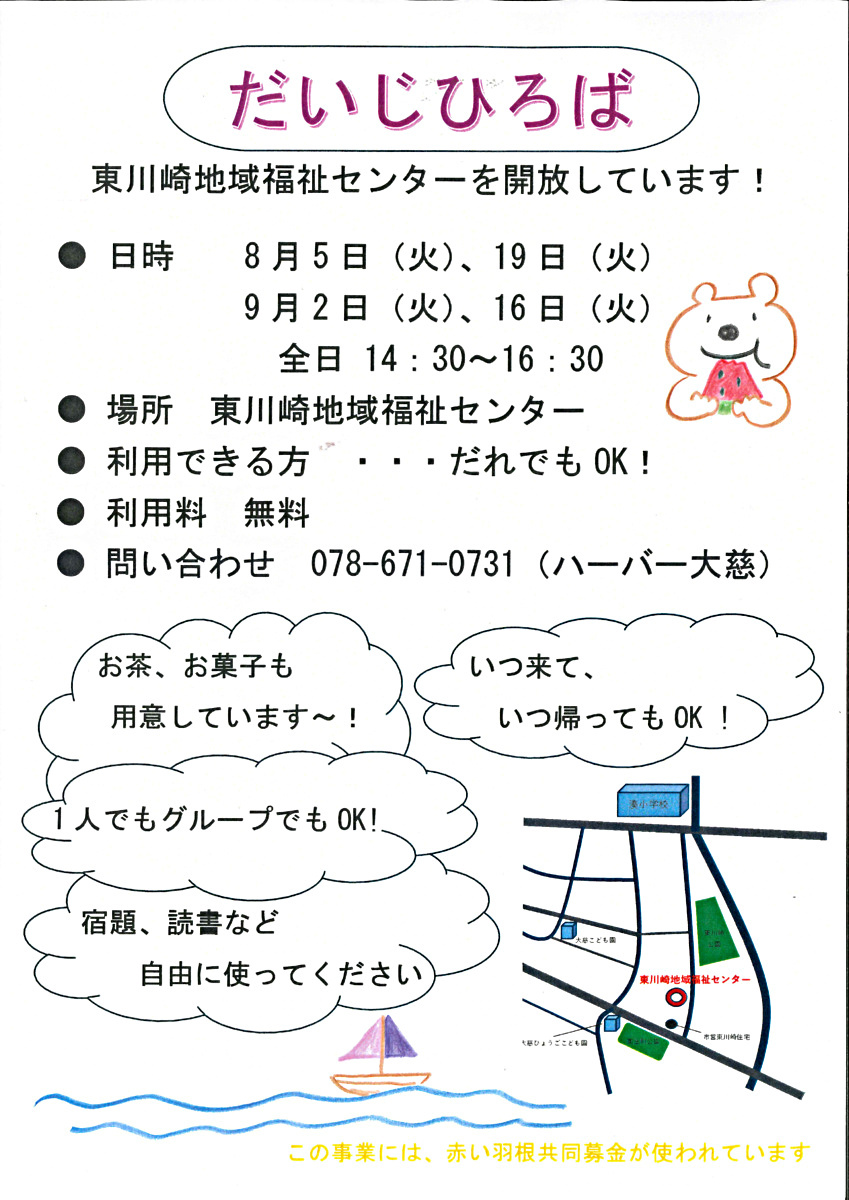 だいじひろば
東川崎地域福祉センターを開放しています！
● 日時　　8月5日（火）、19日（火）
9月2日（火）、16日（火）
全日 14：30～16：30
● 場所　東川崎地域福祉センター
● 利用できる方　・・・だれでもOK！
● 利用料　無料
● 問い合わせ　078-671-0731（ハーバー大慈）
お茶、お菓子も
用意しています～！
いつ来て、
いつ帰ってもOK！
1人でもグループでもOK!
宿題、読書など
自由に使ってください
湊小学校
東川崎
公園
大慈こども園
東川崎地域福祉センター
市営東川崎住宅
大慈ひょうごこども園
この事業には、赤い羽根共同募金が使われています